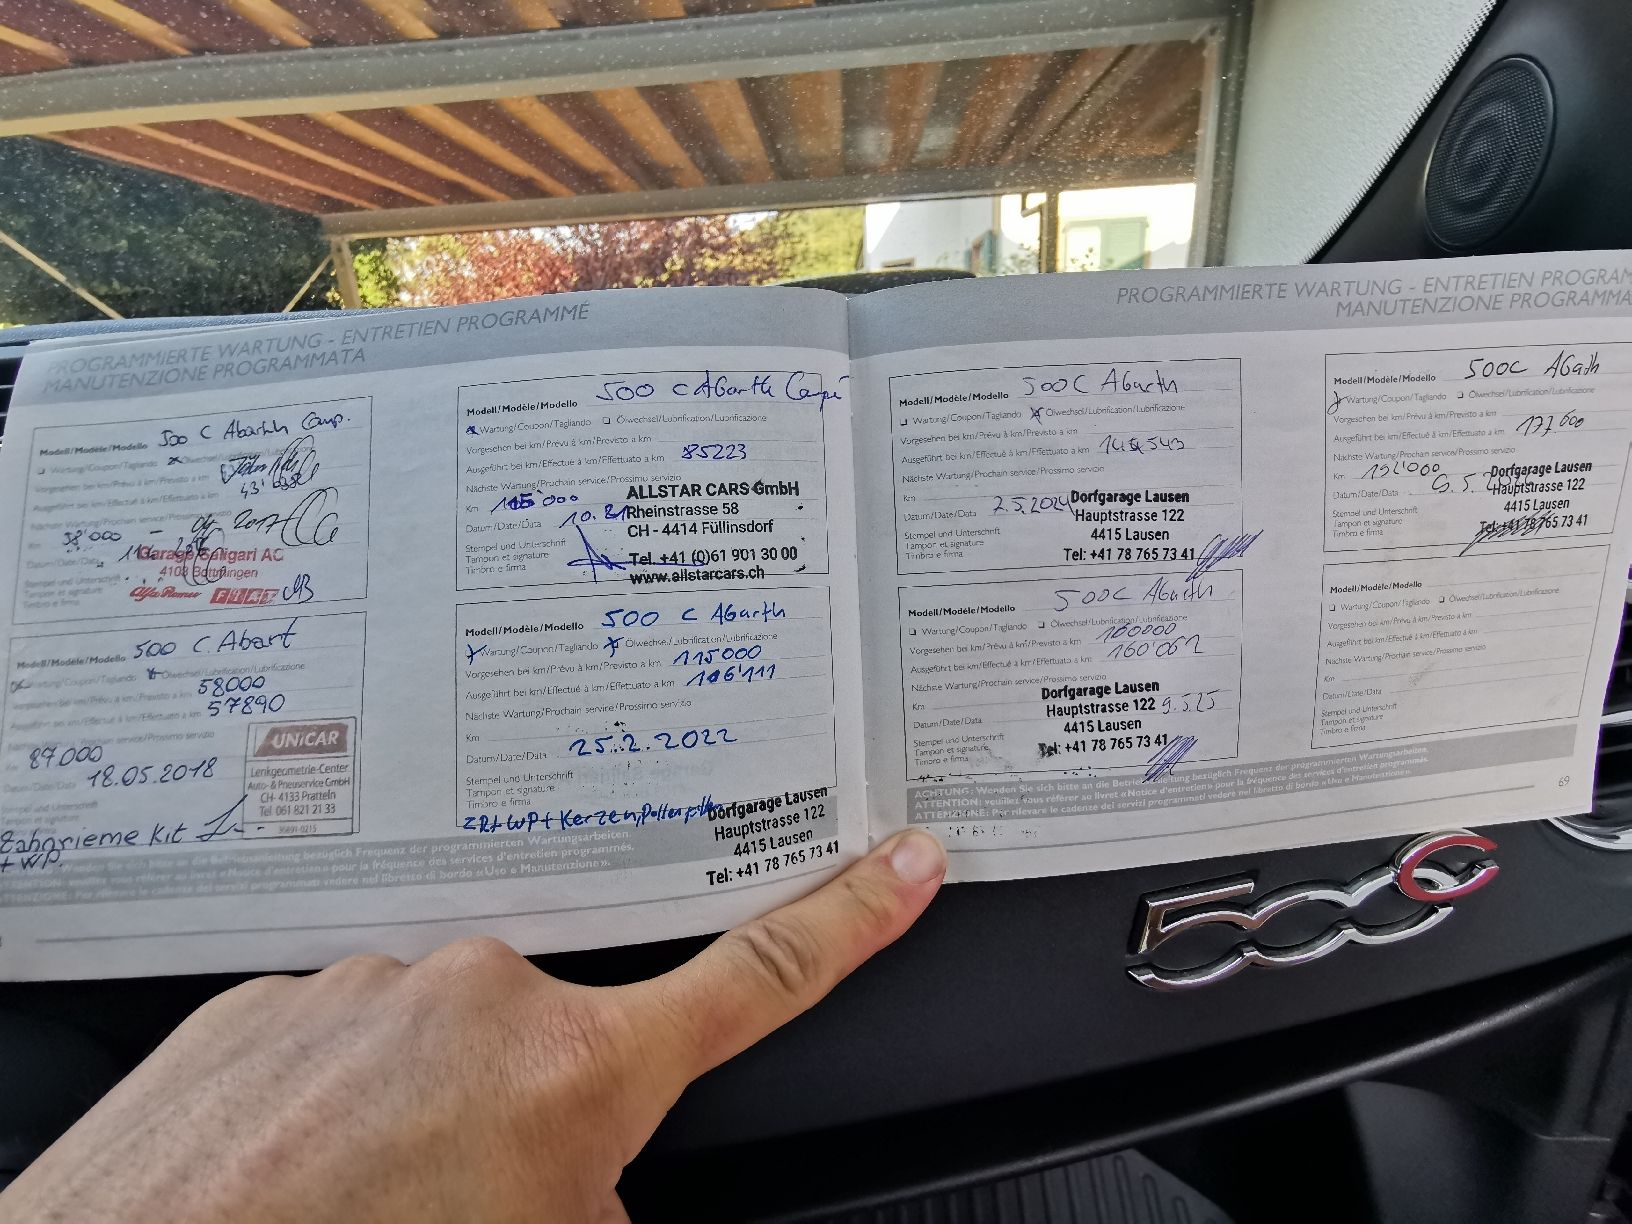 PROGRAMMIERTE WARTUNG - ENTRETIEN PROGRAMMÉ
MANUTENZIONE PROGRAMMATA
Modell/Modèle/Modello 500 C Abarth Comp.
Wartung/Coupon/Tagliando
Vorgesehen bei km/Prévu à km/Previsto a km
Ausgeführt bei km/Effectué à km/Effettuato a km
Nächste Wartung/Prochain service/Prossimo servizio
04. 2017
Km 58'000
Garage Caligari AG
4103 Bottmingen
Alfa Romeo FIAT
Modell/Modèle/Modello 500 C. Abart
Wartung/Coupon/Tagliando Ölwechsel/Lubrification/Lubrificazione
58000
57890
Km 87.000
18.05.2018
UNiCAR
Lenkgeometrie-Center
Auto- & Pneuservice GmbH
CH- 4133 Pratteln
Tel 061 821 21 33
Zahnrieme Kit
+ WP.
Modell/Modèle/Modello 500 C Abarth Coupé
Wartung/Coupon/Tagliando Ölwechsel/Lubrification/Lubrificazione
Vorgesehen bei km/Prévu à km/Previsto a km
Ausgeführt bei km/Effectué à km/Effettuato a km 85223
Nächste Wartung/Prochain service/Prossimo servizio
Km 115'000
Datum/Date/Data 10.
Stempel und Unterschrift
Tampon et signature
Timbro e firma
ALLSTAR CARS GmbH
Rheinstrasse 58
CH - 4414 Füllinsdorf
Tel. +41 (0)61 901 30 00
www.allstarcars.ch
Modell/Modèle/Modello 500 C Abarth
Wartung/Coupon/Tagliando Ölwechsel/Lubrification/Lubrificazione
Vorgesehen bei km/Prévu à km/Previsto a km 115000
Ausgeführt bei km/Effectué à km/Effettuato a km 106'111
Nächste Wartung/Prochain service/Prossimo servizio
Km
Datum/Date/Data 25.2.2022
Stempel und Unterschrift
Tampon et signature
Timbro e firma
ZR+WP+Kerzen,
Dorfgarage Lausen
Hauptstrasse 122
4415 Lausen
Tel: +41 78 765 73 41
bezüglich Frequenz der programmierten Wartungsarbeiten.
pour la fréquence des services d'entretien programmés.
vedere nel libretto di bordo «Uso e Manutenzione».
PROGRAMMIERTE WARTUNG - ENTRETIEN PROGRAM
MANUTENZIONE PROGRAMMA
Modell/Modèle/Modello 500C Abarth
Wartung/Coupon/Tagliando Ölwechsel/Lubrification/Lubrificazione
Vorgesehen bei km/Prévu à km/Previsto a km
Ausgeführt bei km/Effectué à km/Effettuato a km
Nächste Wartung/Prochain service/Prossimo servizio
Km
Datum/Date/Data 2.5.2024
Stempel und Unterschrift
Tampon et signature
Timbro e firma
Dorfgarage Lausen
Hauptstrasse 122
4415 Lausen
Tel: +41 78 765 73 41
Modell/Modèle/Modello 500C Abarth
Wartung/Coupon/Tagliando Ölwechsel/Lubrification/Lubrificazione
Vorgesehen bei km/Prévu à km/Previsto a km 160000
Ausgeführt bei km/Effectué à km/Effettuato a km 160'062
Nächste Wartung/Prochain service/Prossimo servizio
Km
Datum/Date/Data 9.5.25
Stempel und Unterschrift
Tampon et signature
Timbro e firma
Dorfgarage Lausen
Hauptstrasse 122
4415 Lausen
Tel: +41 78 765 73 41
Modell/Modèle/Modello 500C Abarth
Wartung/Coupon/Tagliando Ölwechsel/Lubrification/Lubrificazione
Vorgesehen bei km/Prévu à km/Previsto a km
Ausgeführt bei km/Effectué à km/Effettuato a km 177.000
Nächste Wartung/Prochain service/Prossimo servizio
Km 192'000
Datum/Date/Data
Stempel und Unterschrift
Tampon et signature
Timbro e firma
Dorfgarage Lausen
Hauptstrasse 122
4415 Lausen
Tel: +41 78 765 73 41
Modell/Modèle/Modello
Wartung/Coupon/Tagliando Ölwechsel/Lubrification/Lubrificazione
Vorgesehen bei km/Prévu à km/Previsto a km
Ausgeführt bei km/Effectué à km/Effettuato a km
Nächste Wartung/Prochain service/Prossimo servizio
Km
Datum/Date/Data
Stempel und Unterschrift
Tampon et signature
Timbro e firma
ACHTUNG: Wenden Sie sich bitte an die Betriebsanleitung bezüglich Frequenz der programmierten Wartungsarbeiten.
ATTENTION: veuillez vous référer au livret «Notice d'entretien» pour la fréquence des services d'entretien programmés.
ATTENZIONE: Per rilevare le cadenze dei servizi programmati vedere nel libretto di bordo «Uso e Manutenzione».
69
500C